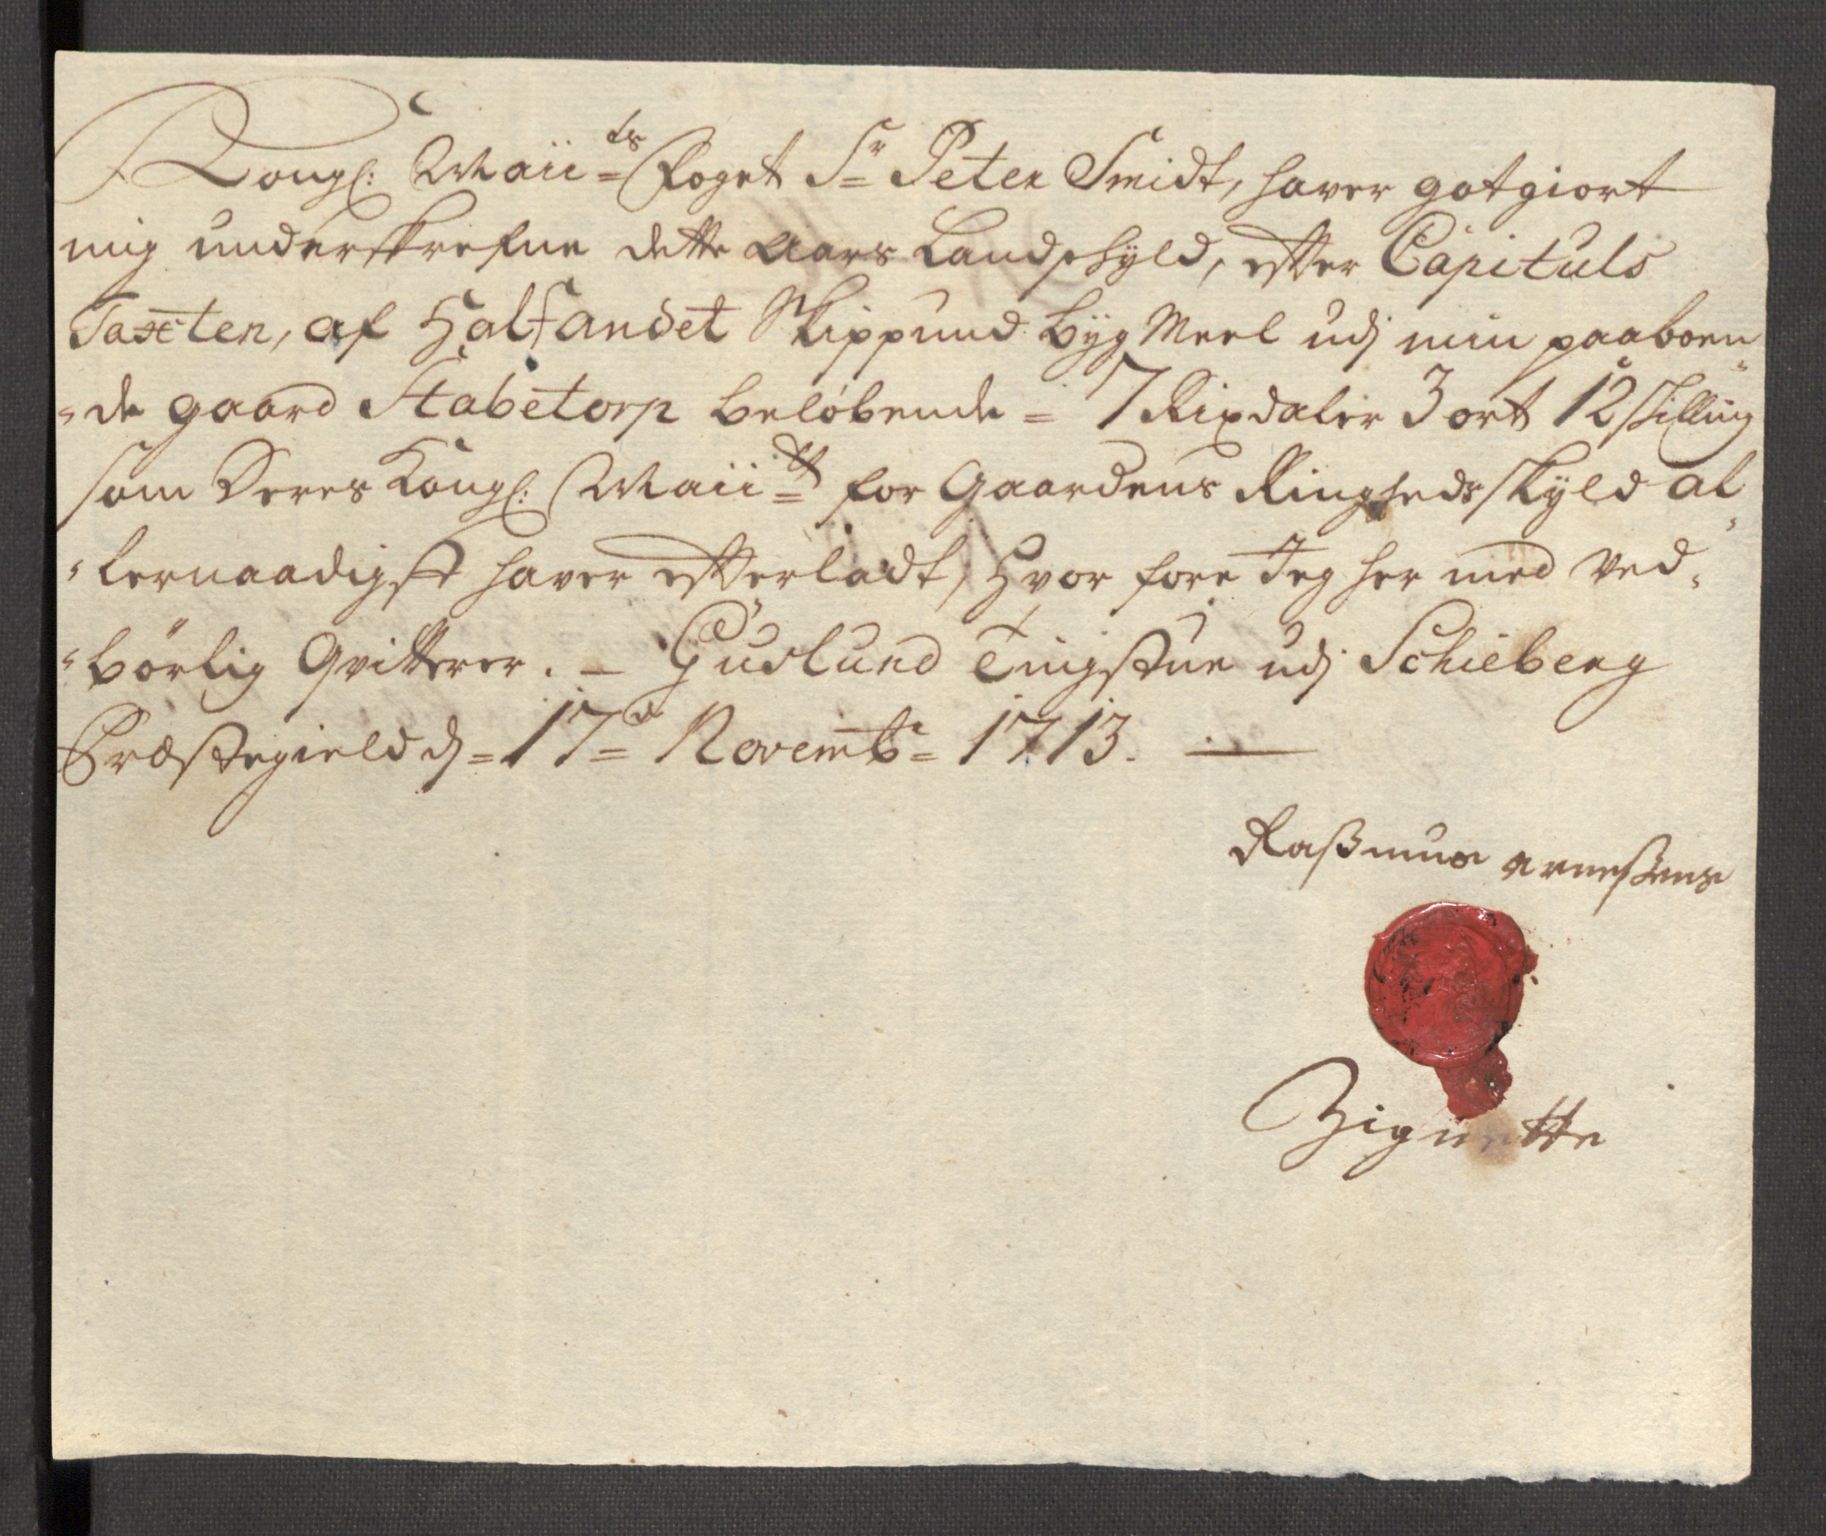 Kongl: Maii=ts Foget Sr= Peter Smidt, haver gotgiort
mig underskrefne dette Aars Landskyld, efter Capituls
Taxten, af Halfandet Skippund Byg Meel udj min paaboen
"de gaard Stabetorp beløbende = 7 Rixdaler 3 ort 12 skilling
som Deres Kongl: Maii=tt for Gaardens Ringheds skyld al„
"lernaadigst haver efterladt, Hvor fore Jeg her med Ved„
"børlig Qvitterer. – Guslund Tingstue udj Schieberg
Præstegield d= 17d= Novembr= 1713. —
Rasmus arnessens
Zignette